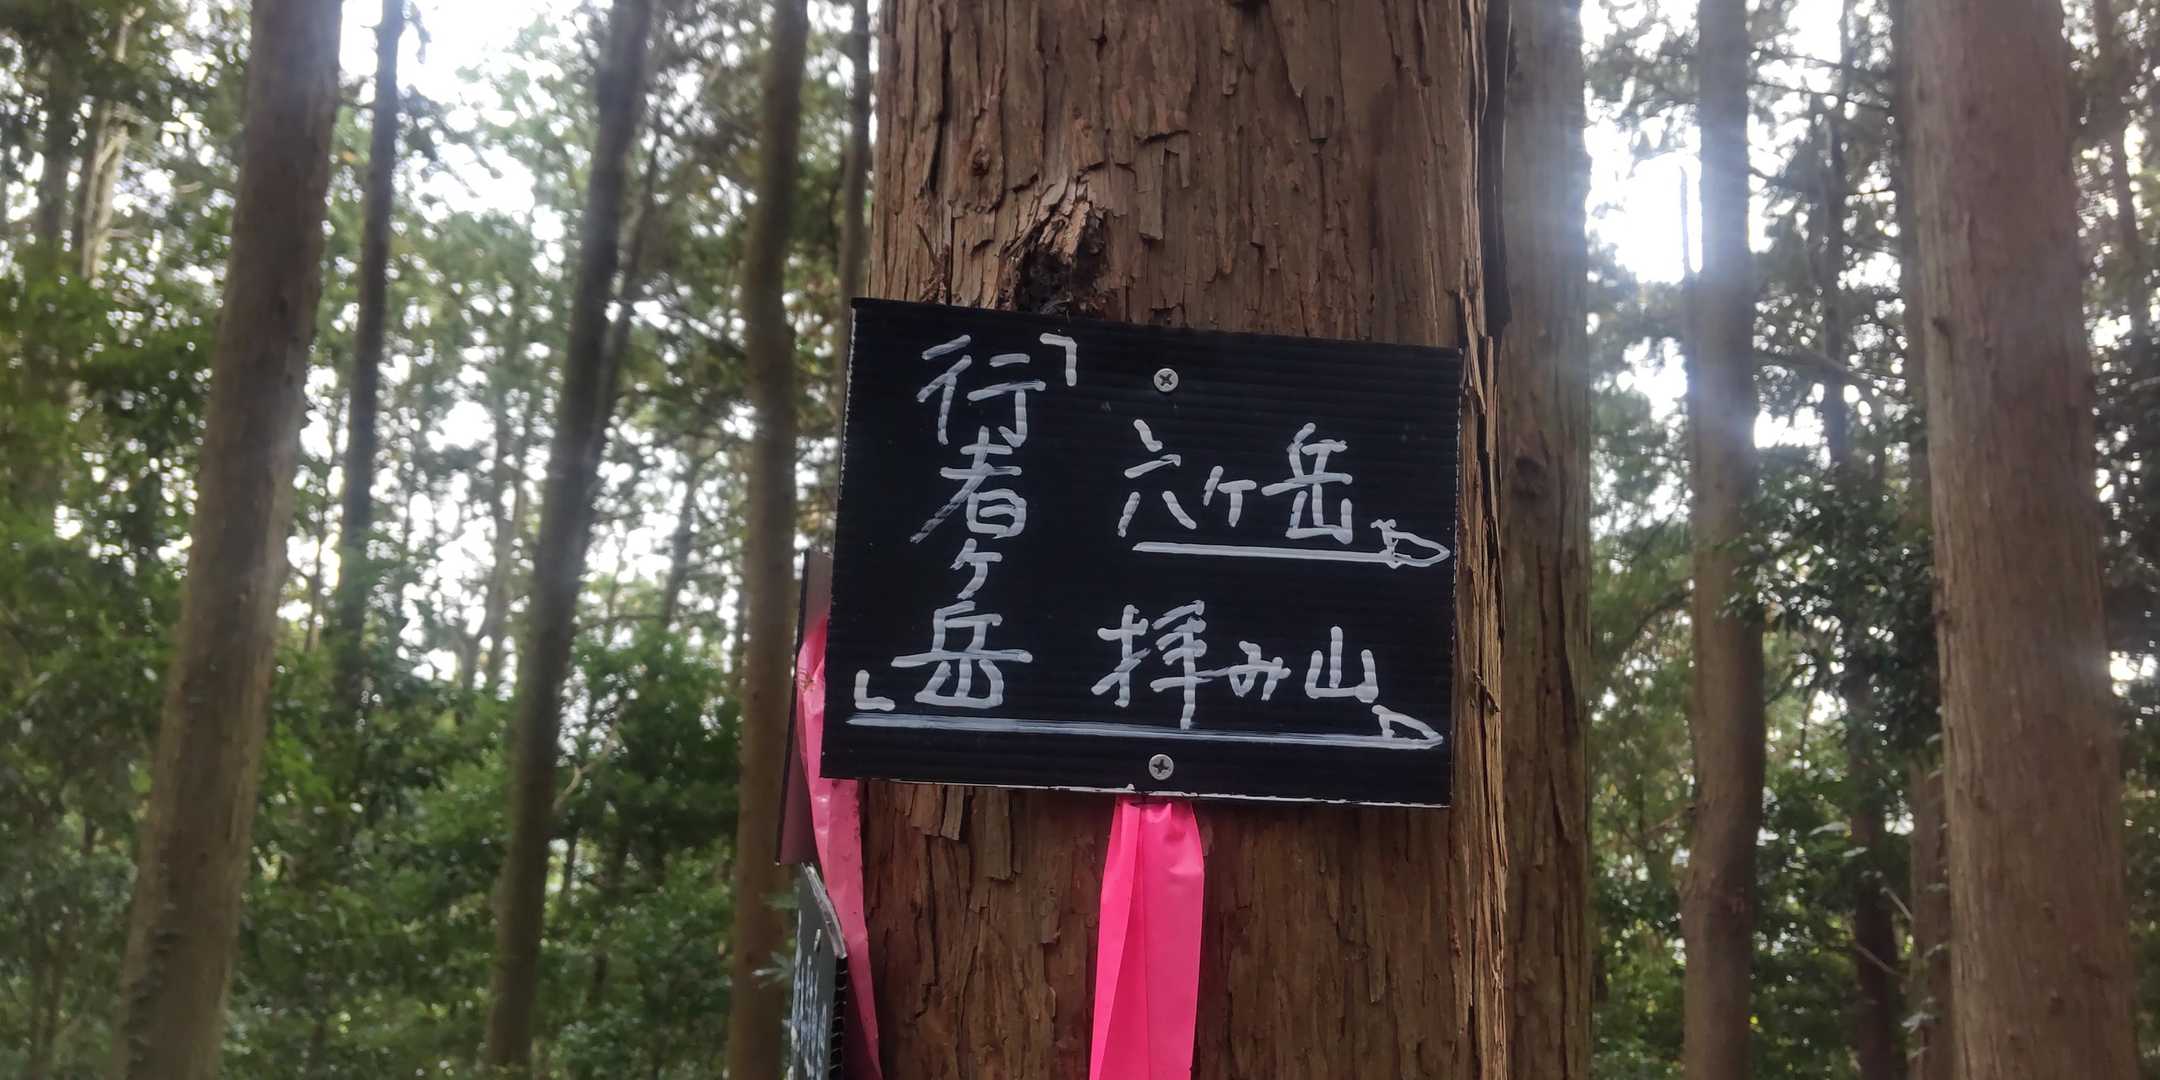 「行者ヶ岳」
六ヶ岳
拝み山